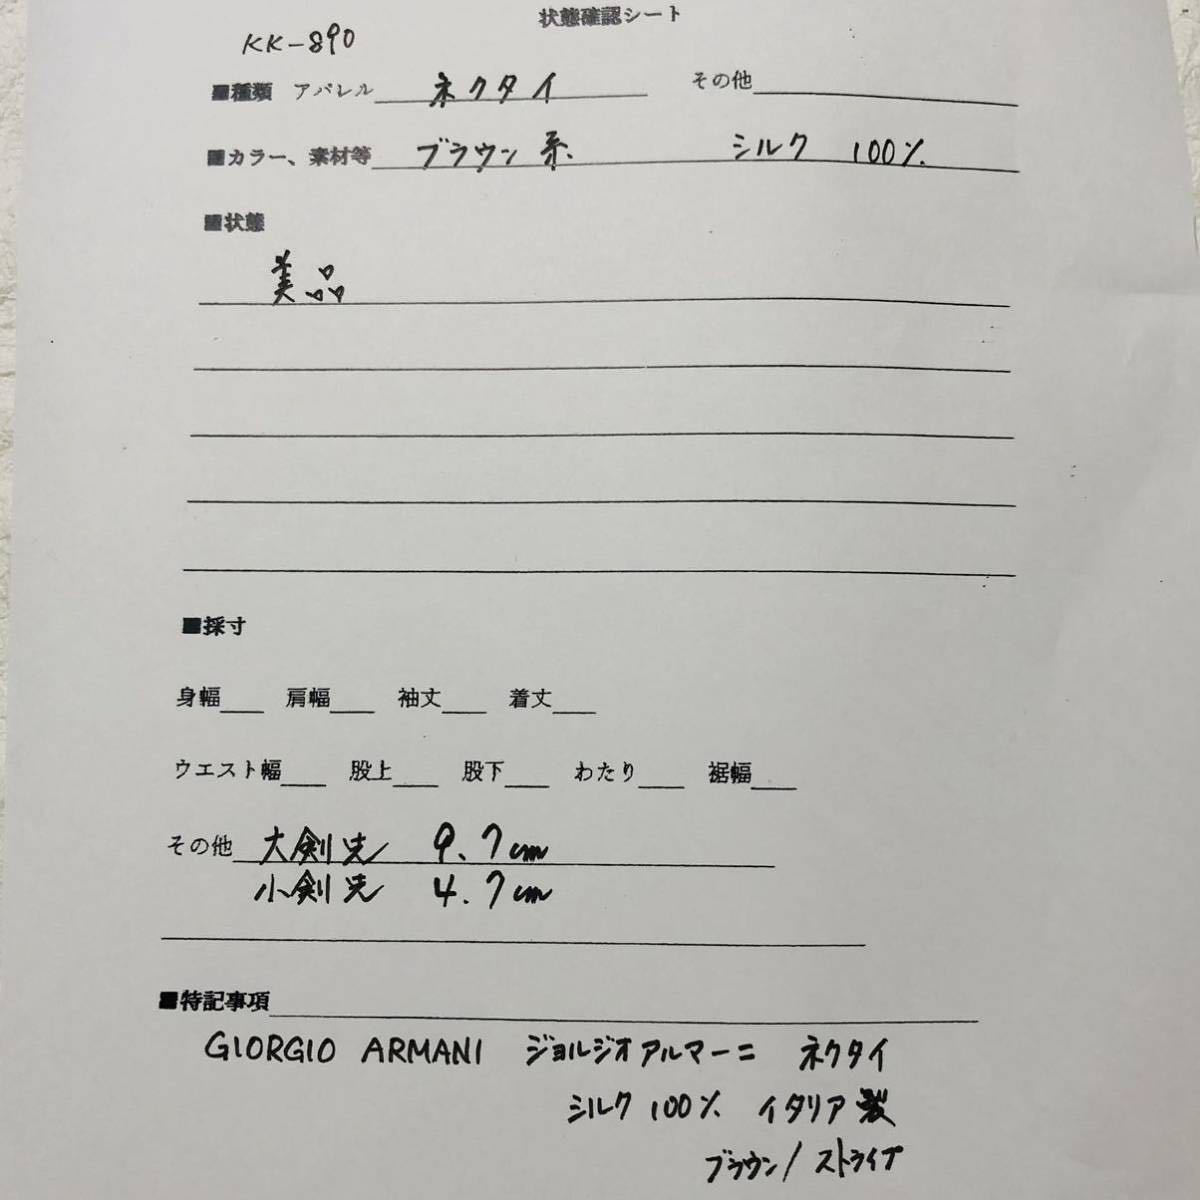 状態確認シート
KK-890
■種類 アパレル ネクタイ その他
■カラー、素材等 ブラウン系 シルク 100%
■状態
美品
■採寸
身幅 肩幅 袖丈 着丈
ウエスト幅 股上 股下 わたり 裾幅
その他 大剣先 9.7cm
小剣先 4.7cm
■特記事項
GIORGIO ARMANI ジョルジオアルマーニ ネクタイ
シルク 100% イタリア製
ブラウン/ストライプ